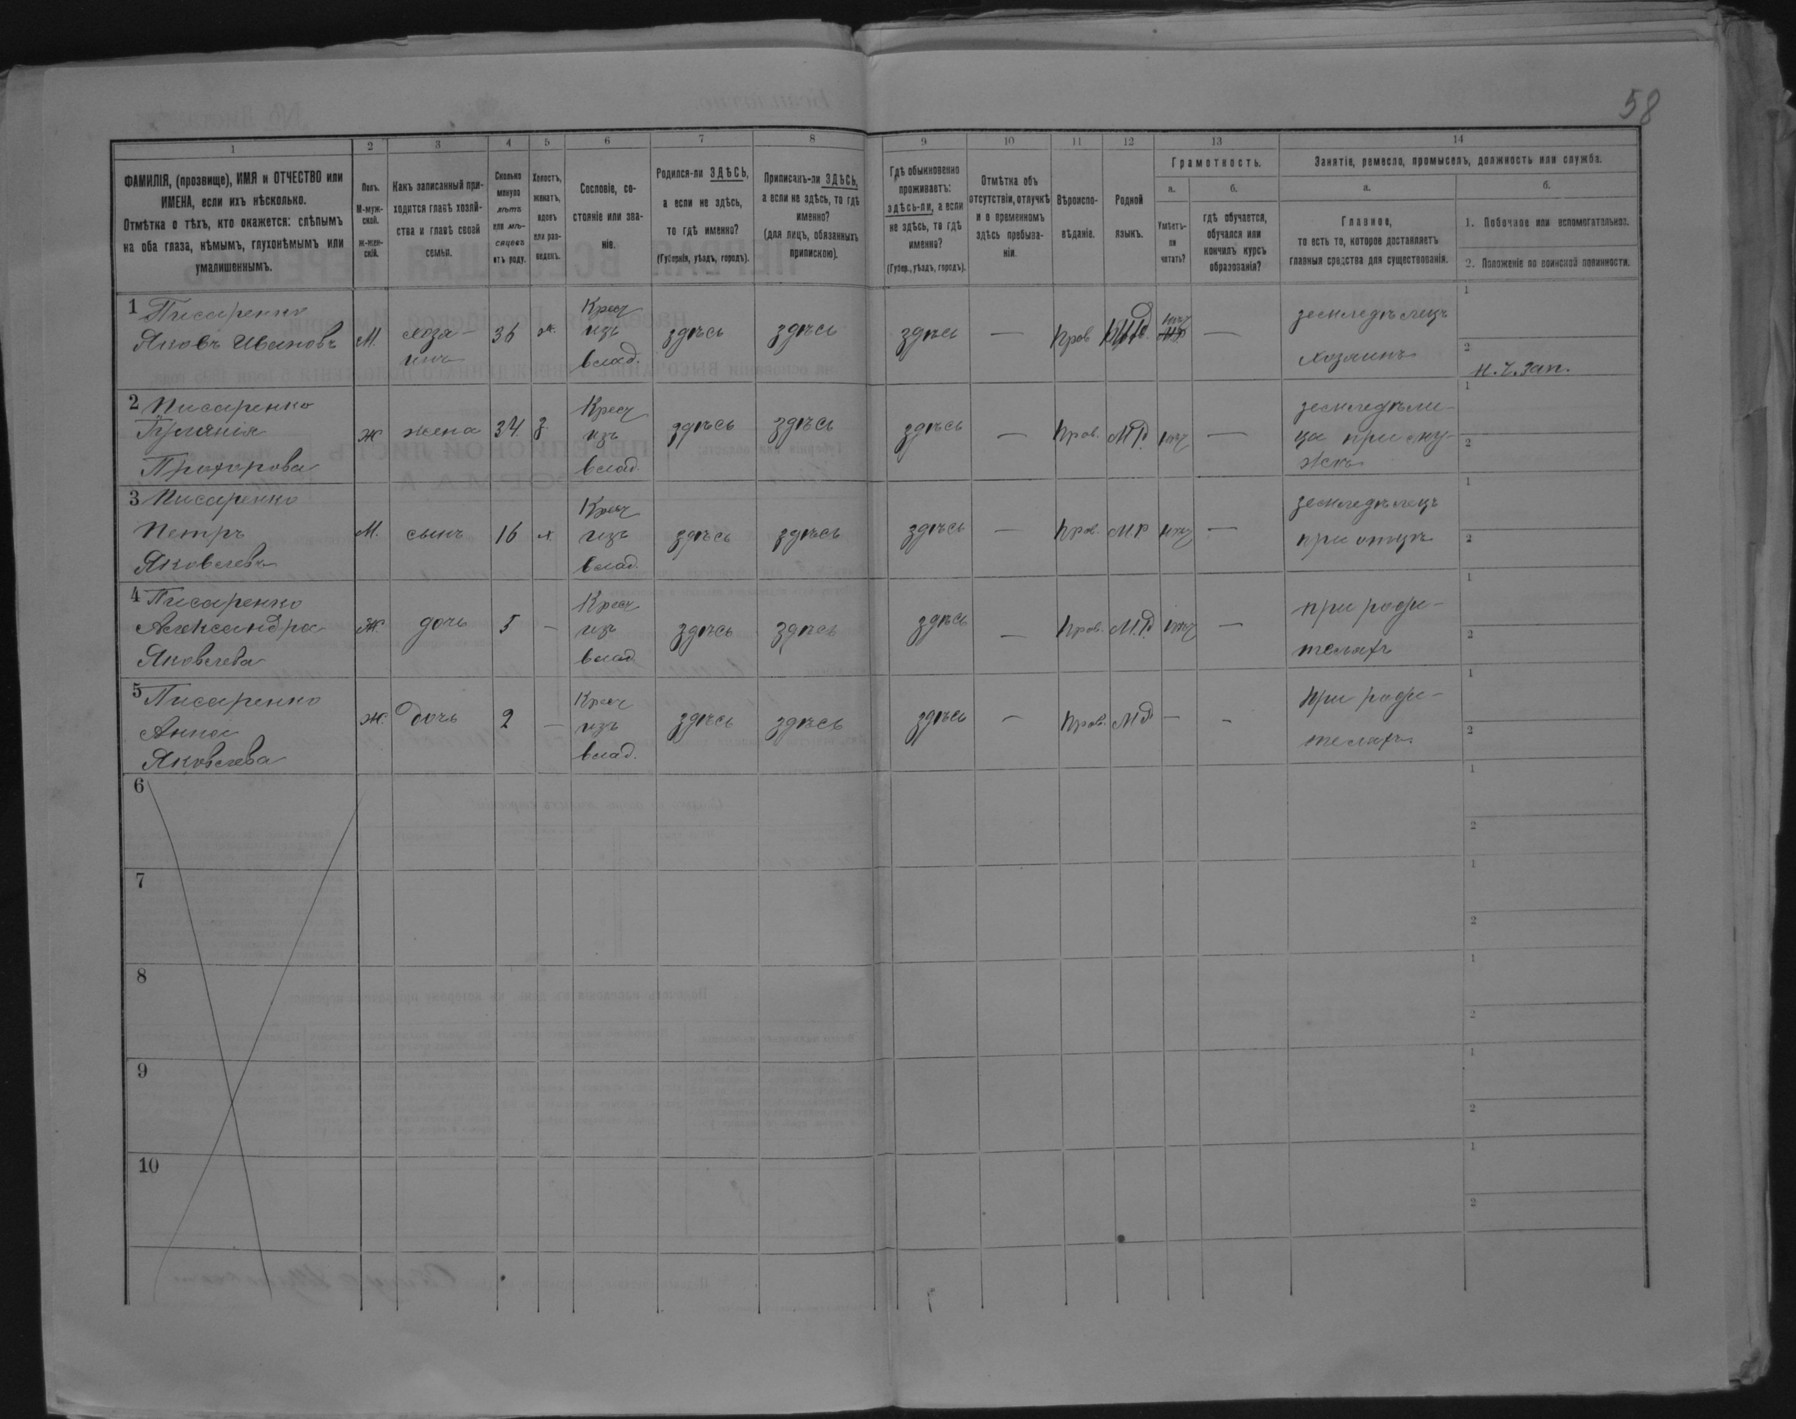 58
1
2
3
4
5
6
7
8
9
10
11
12
13
14
ФАМИЛІЯ, (прозвище), ИМЯ и ОТЧЕСТВО или
ИМЕНА, если ихъ нѣсколько.
Отмѣтка о тѣхъ, кто окажется: слѣпымъ
на оба глаза, нѣмымъ, глухонѣмымъ или
умалишеннымъ.
Полъ.
М-муж-
ской.
Ж-жен-
скій.
Какъ записанный при-
ходится главѣ хозяй-
ства и главѣ своей
семьи.
Сколько
минуло
лѣтъ
или мѣ-
сяцевъ
отъ роду.
Холостъ,
женатъ,
вдовъ
или раз-
веденъ.
Сословіе, со-
стояніе или зва-
ніе.
Родился-ли ЗДѢСЬ,
а если не здѣсь,
то гдѣ именно?
(Губернія, уѣздъ, городъ).
Приписанъ-ли ЗДѢСЬ,
а если не здѣсь, то гдѣ
именно?
(для лицъ, обязанныхъ
припискою).
Гдѣ обыкновенно
проживаетъ:
здѣсь-ли, а если
не здѣсь, то гдѣ
именно?
(Губер., уѣздъ, городъ).
Отмѣтка объ
отсутствіи, отлучкѣ
и о временномъ
здѣсь пребыва-
ніи.
Вѣроиспо-
вѣданіе.
Родной
языкъ.
Грамотность.
а.
Умѣетъ-
ли
читать?
б.
гдѣ обучается,
обучался или
кончилъ курсъ
образованія?
Занятіе, ремесло, промыселъ, должность или служба.
а.
Главное,
то есть то, которое доставляетъ
главныя средства для существованія.
б.
1. Побочное или вспомогательное.
2. Положеніе по воинской повинности.
1 Писаренко
Яковъ Ивановъ
М.
хозя-
инъ
36
ж.
Крест
изъ
влад.
здѣсь
здѣсь
здѣсь
—
Прав
нѣтъ
—
земледѣлецъ
хозяинъ
1
2
2 Писаренко
Прохорова
Ж
жена
34
Крест
изъ
влад
здѣсь
здѣсь
здѣсь
—
Прав.
МР.
нѣтъ
—
земледѣли-
ца при му-
жѣ
1
2
3 Писаренко
Петръ
Яковлевъ
М.
сынъ
16
х.
Крест
изъ
влад.
здѣсь
здѣсь
здѣсь
—
Прав.
МР
нѣтъ
—
земледѣлецъ
при отцѣ
1
2
4 Писаренко
Александра
Яковлева
Ж.
дочь
5
—
Крест
изъ
влад
здѣсь
здѣсь
здѣсь
—
Прав.
М.Р
нѣтъ
—
при роди-
теляхъ
1
2
5 Писаренко
Анна
Яковлева
Ж.
дочь
2
—
Крест
изъ
влад.
здѣсь
здѣсь
здѣсь
—
Прав.
МР
—
—
при роди-
теляхъ
1
2
6
1
2
7
1
2
8
1
2
9
1
2
10
1
2